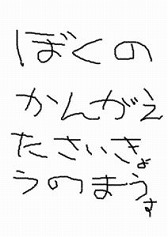 ぼくの
かんがえ
たさいきょ
うのまうす